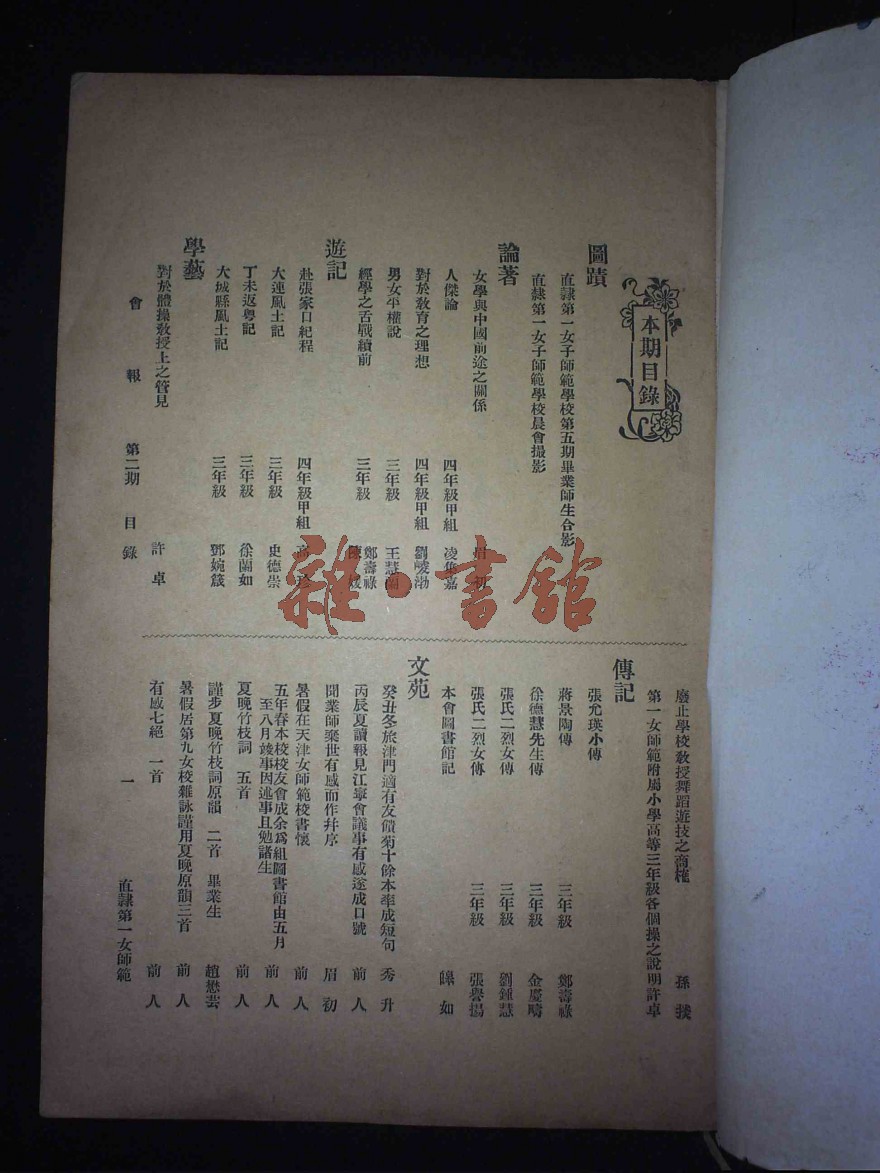 本期目錄
圖蹟
直隸第一女子師範學校第五期畢業師生合影
直隸第一女子師範學校晨會攝影
論著
女學與中國前途之關係 眉初
人傑論 四年級甲組 凌集嘉
對於教育之理想 四年級甲組 劉崚渤
男女平權說 三年級 王慧蘭
經學之舌戰續前 三年級 鄭壽祿 陳
遊記
赴張家口紀程 四年級甲組
大連風土記 三年級 史德崇
丁未返粵記 三年級 徐蘭如
大城縣風土記 三年級 鄧婉箴
學藝
對於體操教授上之管見 許卓
廢止學校教授舞蹈遊技之商榷 孫
第一女師範附屬小學高等三年級各個操之說明 許卓
傳記
張允瑛小傳
蔣景陶傳 三年級 鄭壽祿
徐德慧先生傳 三年級 金慶疇
張氏二烈女傳 三年級 劉鍾慧
張氏二烈女傳 三年級 張譽揚
本會圖書館記 皞如
文苑
癸丑冬旅津門適有友饋菊十餘本率成短句 秀升
丙辰夏讀報見江寧會議事有感遂成口號 前人
聞業師棄世有感而作并序 眉初
暑假在天津女師範校書懷 前人
五年春本校校友會成余爲組圖書館由五月至八月竣事因述事且勉諸生 前人
夏晚竹枝詞 五首 前人
謹步夏晚竹枝詞原韻 二首 畢業生 趙懋芸
暑假居第九女校雜詠謹用夏晚原韻三首 前人
有感七絕 一首 前人
會報 第二期 目錄 一 直隸第一女師範
雜·書館